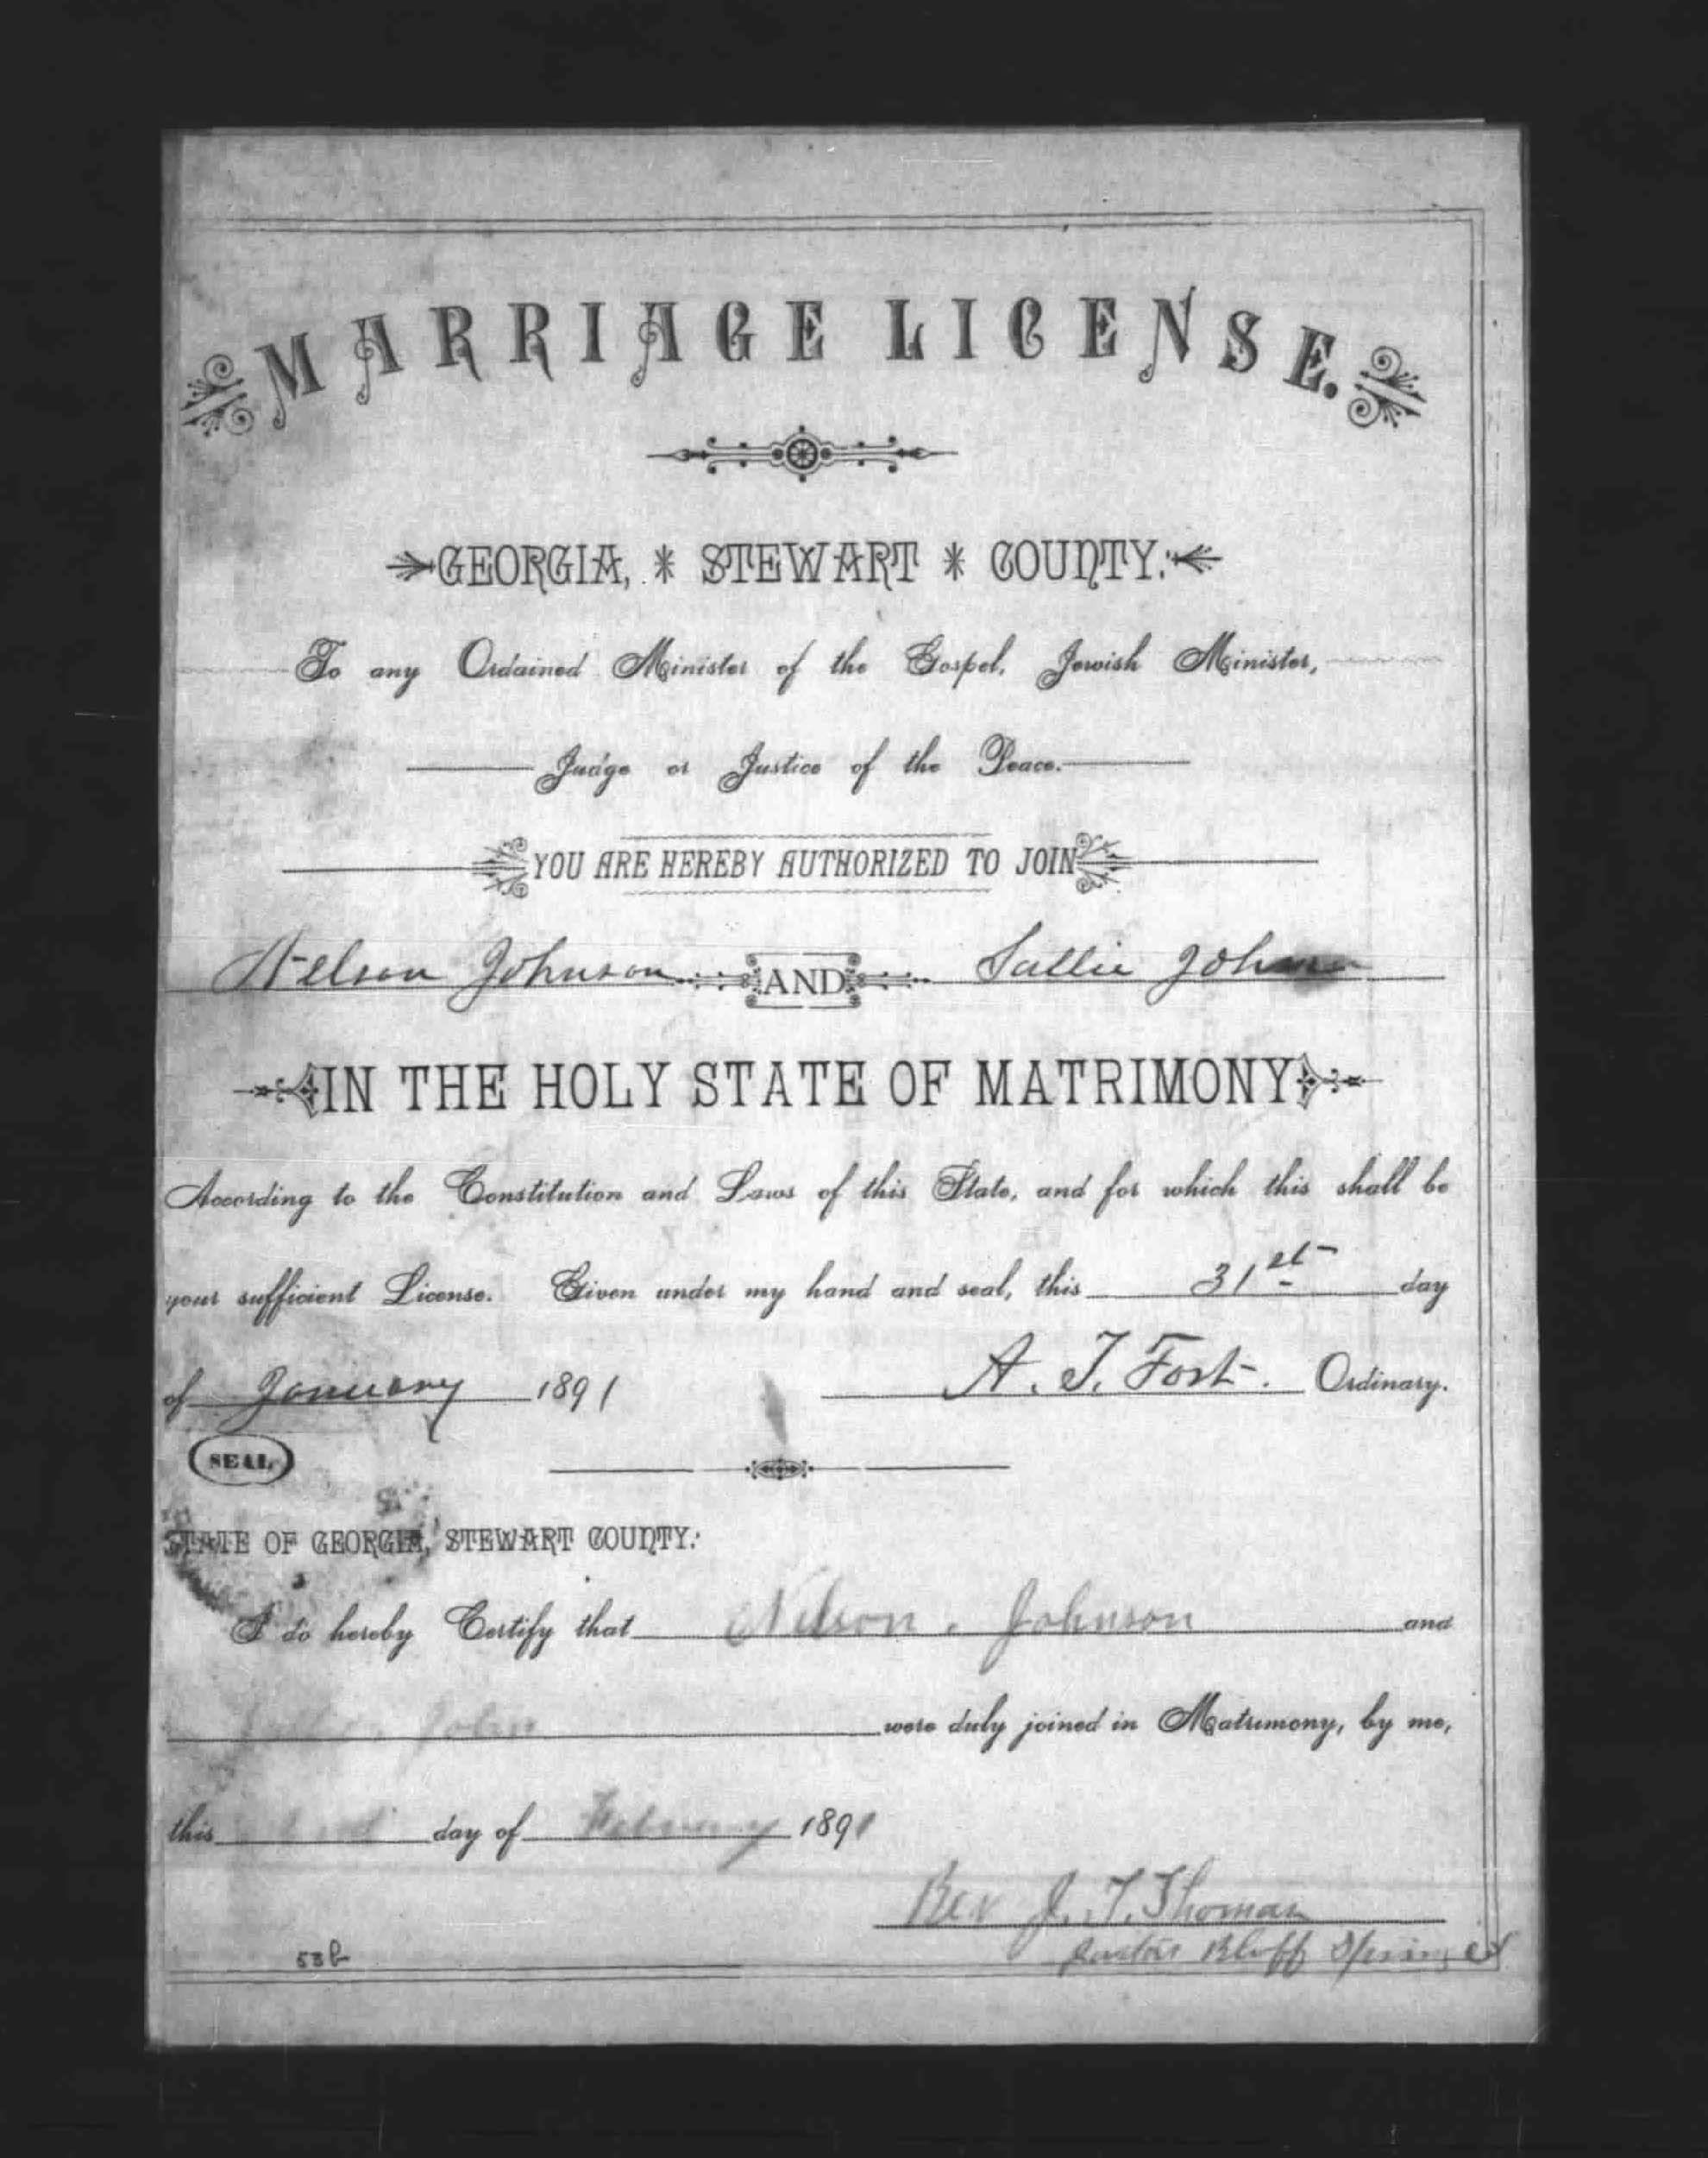 MARRIAGE LICENSE.
GEORGIA, * STEWART * COUNTY:
To any Ordained Minister of the Gospel, Jewish Minister,
Judge or Justice of the Peace.
YOU ARE HEREBY AUTHORIZED TO JOIN
Nelson Johnson AND Sallie
IN THE HOLY STATE OF MATRIMONY
According to the Constitution and Laws of this State, and for which this shall be
your sufficient License. Given under my hand and seal, this 31st day
of January 1891 A. T. Fort. Ordinary.
SEAL
STATE OF GEORGIA, STEWART COUNTY:
I do hereby Certify that Nelson Johnson and
were duly joined in Matrimony, by me,
this day of February 1891
Rev J. T. Thomas
Bluff Spring